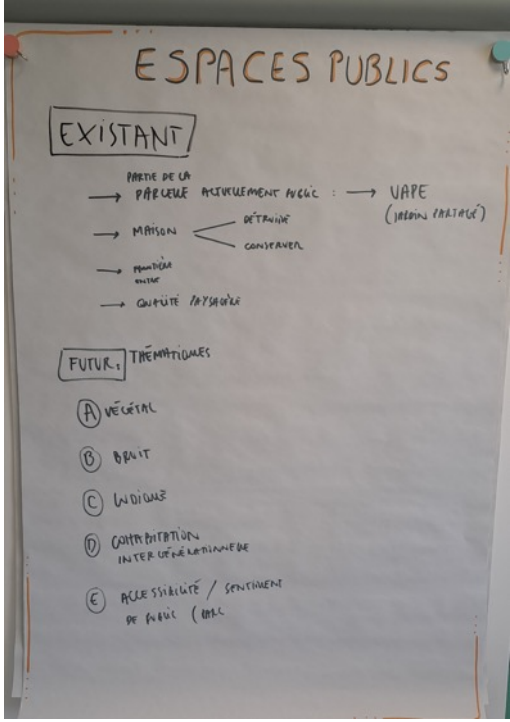 ESPACES PUBLICS
EXISTANT
PARTIE DE LA
→ PARCELLE ACTUELLEMENT PUBLIC : → VAPE
(JARDIN PARTAGÉ)
→ MAISON
DÉTRUIRE
CONSERVER
→ FRONTIÈRE
→ QUALITÉ PAYSAGÈRE
FUTUR : THÉMATIQUES
A VÉGÉTAL
B BRUIT
C LUDIQUE
D COHABITATION
INTERGÉNÉRATIONNELLE
E ACCESSIBILITÉ / SENTIMENT
DE PUBLIC (PARC